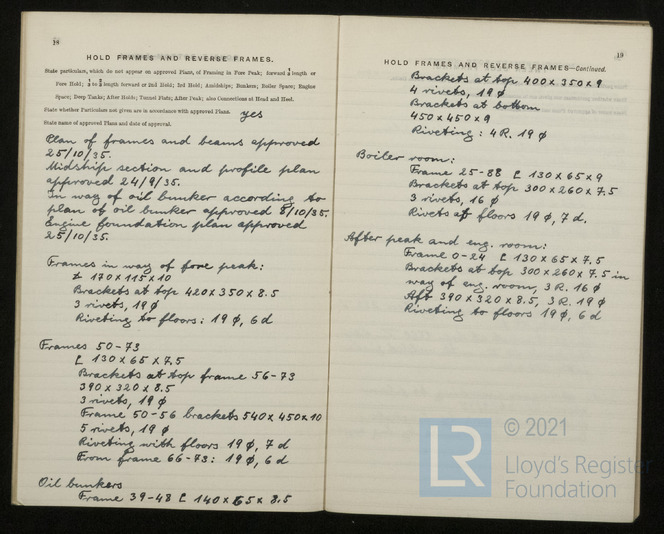 18
HOLD FRAMES AND REVERSE FRAMES.
State particulars, which do not appear on approved Plans, of Framing in Fore Peak; forward ⅕ length or
Fore Hold; ⅕ to ⅗ length forward or 2nd Hold; 3rd Hold; Amidships; Bunkers; Boiler Space; Engine
Space; Deep Tanks; After Holds; Tunnel Flats; After Peak; also Connections at Head and Heel.
State whether Particulars not given are in accordance with approved Plans. yes
State name of approved Plans and date of approval.
Plan of frames and beams approved
25/10/35.
Midship section and profile plan
approved 24/9/35.
In way of oil bunker according to
plan of oil bunker approved 8/10/35.
Engine foundation plan approved
25/10/35.
Frames in way of fore peak:
170 x 115 x 10
Brackets at top 420 x 350 x 8.5
3 rivets, 19 ϕ
Riveting to floors: 19 ϕ, 6 d
Frames 50-73
[ 130 x 65 x 7.5
Brackets at top frame 56-73
390 x 320 x 8.5
3 rivets, 19 ϕ
Frame 50-56 brackets 540 x 450 x 10
5 rivets, 19 ϕ
Riveting with floors 19 ϕ, 7 d
From frame 66-73: 19 ϕ, 6 d
Oil bunkers
Frame 39-48 [ 140 x 65 x 8.5
19
HOLD FRAMES AND REVERSE FRAMES—Continued.
Brackets at top 400 x 350 x 9
4 rivets, 19 ϕ
Brackets at bottom
450 x 450 x 9
Riveting: 4 R. 19 ϕ
Boiler room:
Frame 25-88 [ 130 x 65 x 9
Brackets at top 300 x 260 x 7.5
3 rivets, 16 ϕ
Rivets at floors 19 ϕ, 7 d.
After peak and eng. room:
Frame 0-24 [ 130 x 65 x 7.5
Brackets at top 300 x 260 x 7.5 in
way of eng. room, 3 R. 16 ϕ
Aft 390 x 320 x 8.5, 3 R. 19 ϕ
Riveting to floors 19 ϕ, 6 d
LR
© 2021
Lloyd's Register
Foundation